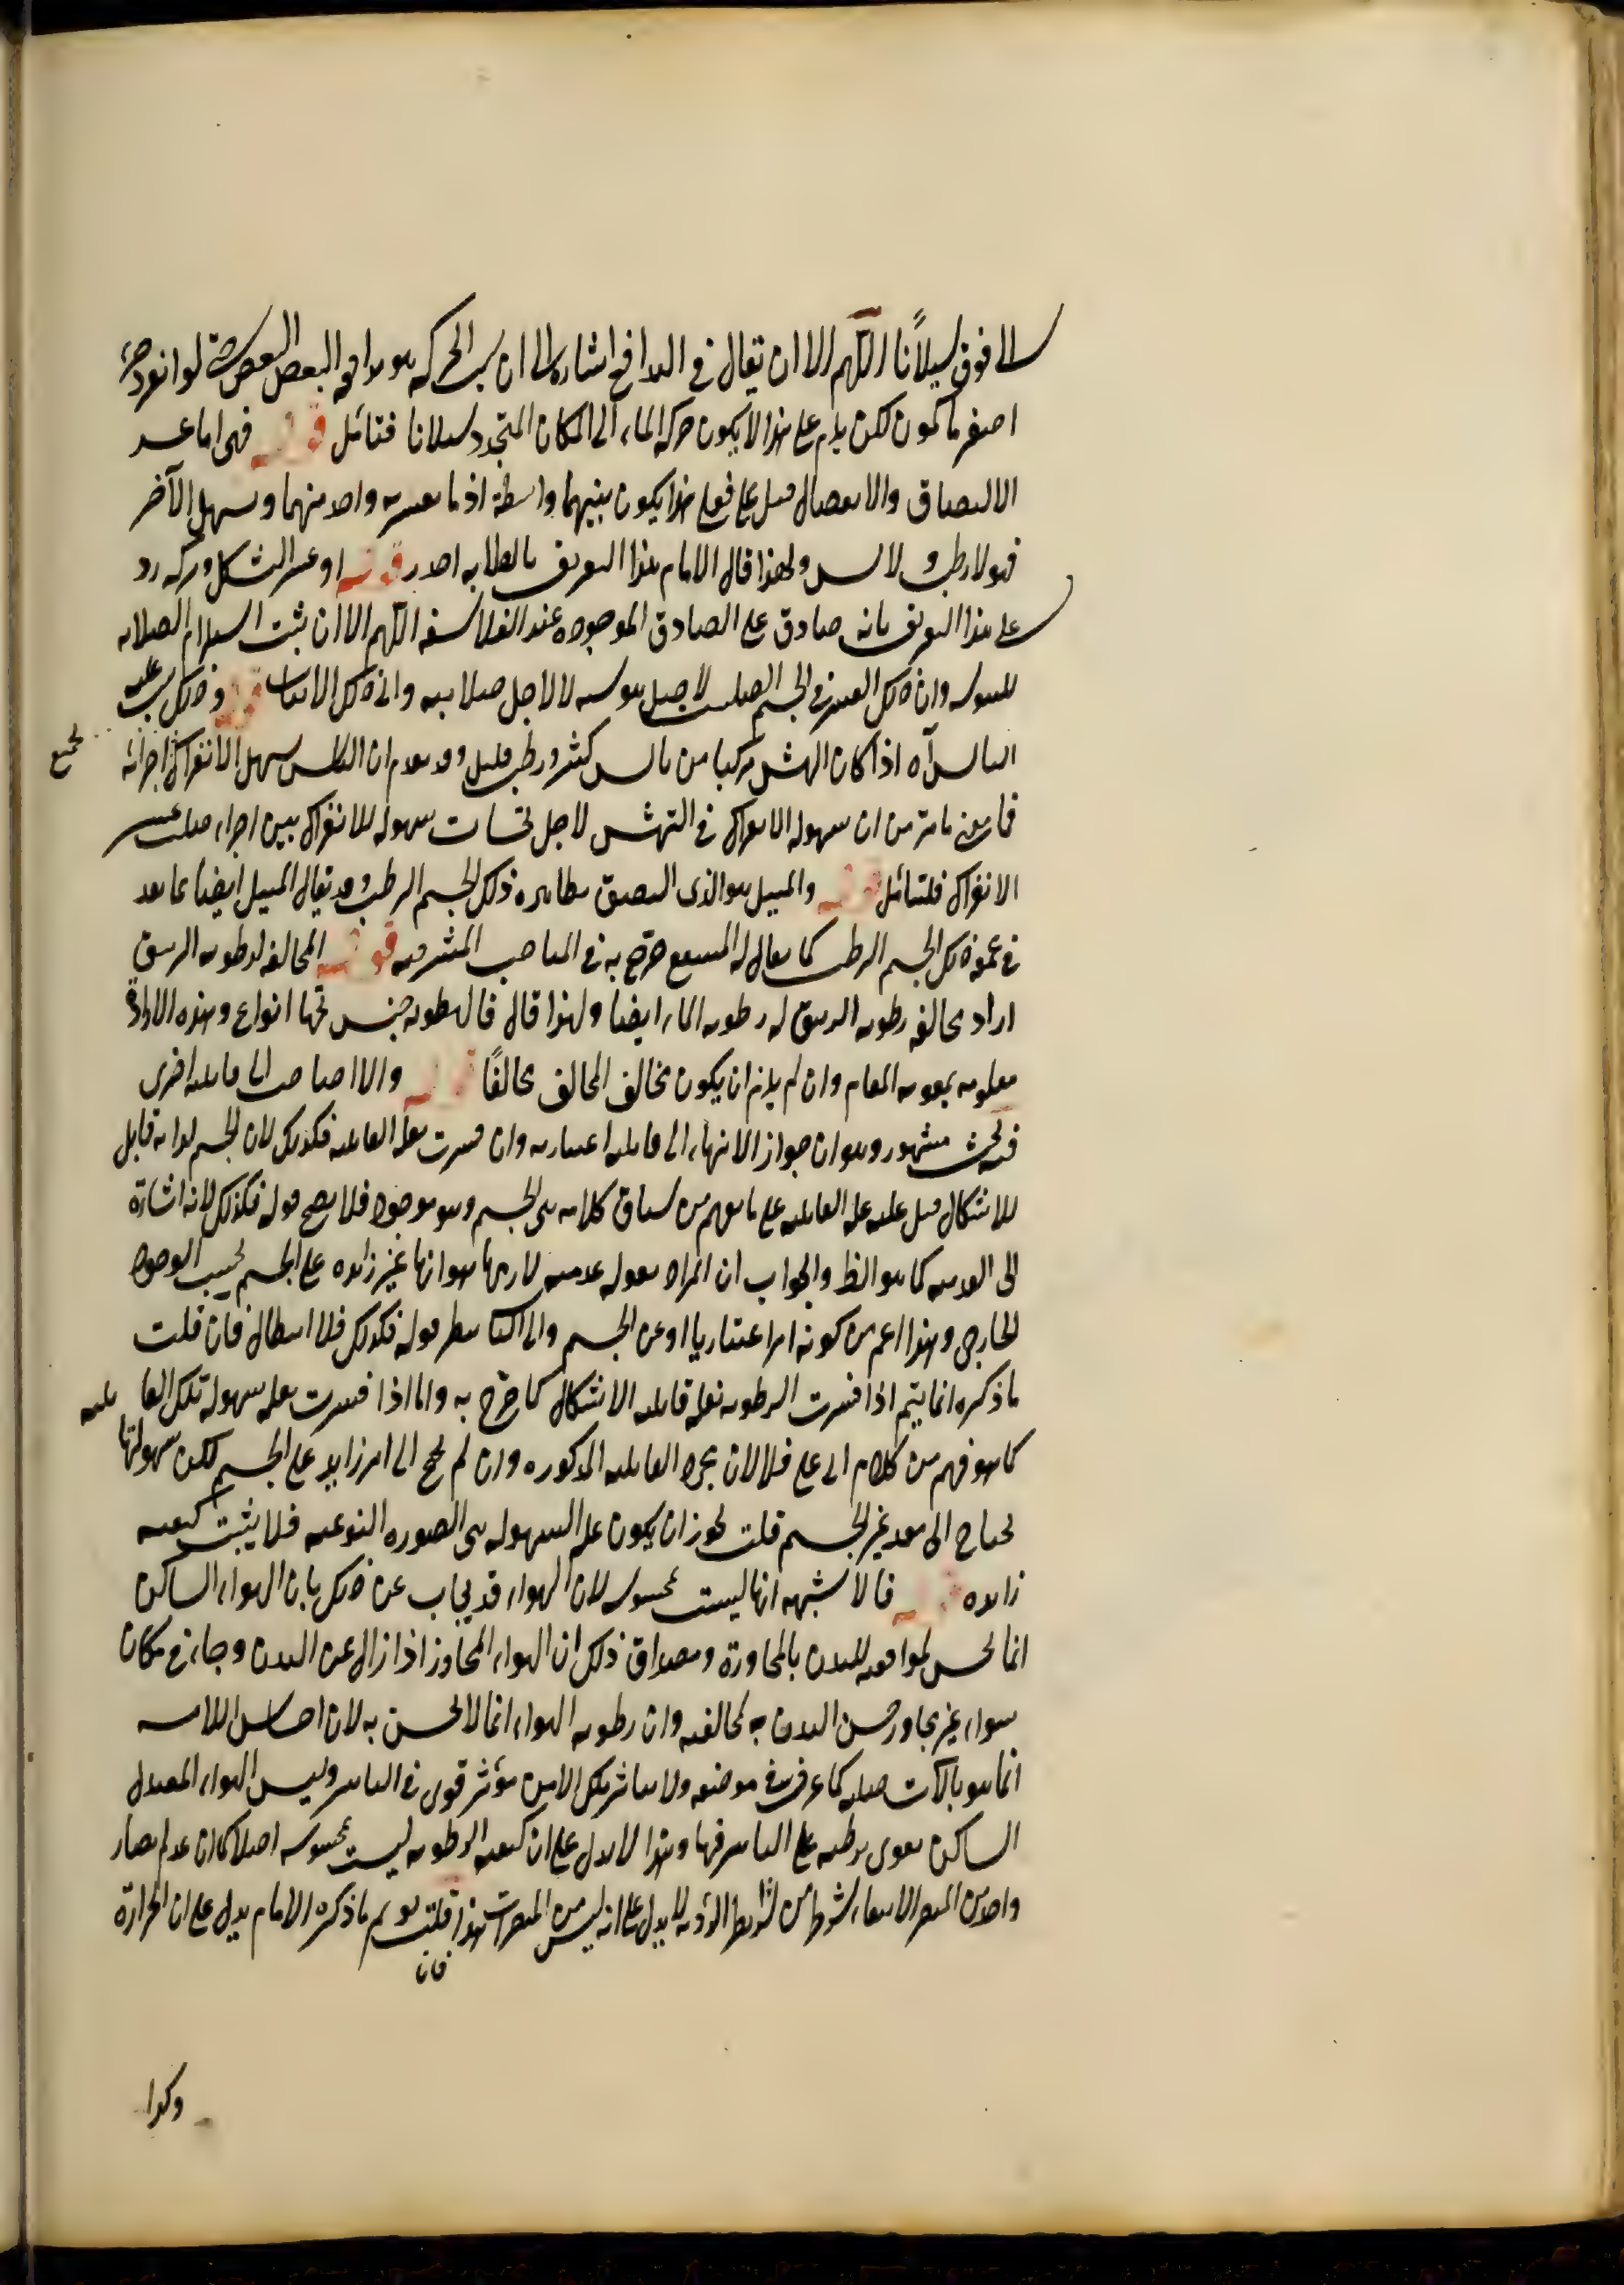 الى فوق سيلانا اللهم الا ان يقال في التدافع اشارة الى ان سبب الحركة هو مدافعة البعض البعض حتى لو انفرد جزء
اصغر ما يكون لكن يلزم على هذا لا يكون حركة الماء الى المكان المتجدد سيلانا فتأمل قوله فهى اما عسر
الالتصاق والانفصال قيل على هذا يكون بينهما واسطة اذ ما يعسر واحد منهما ويسهل الآخر
فهو لا رطب ولا يابس ولهذا قال الامام هذا التعريف بالصلابة اجدر قوله او عسر التشكل وتركه رد
على هذا التعريف بانه صادق على الصلابة الموجودة عند الفلاسفة اللهم الا ان يثبت استلزام الصلابة
لليبوسة وان ذلك العسر في الجسم الصلب لاجل يبوسته لا لاجل صلابته وانى ذلك الاثبات قوله وذلك يغلب عليه
اليابس آه اذا كان الهش مركبا من يابس كثير ورطب قليل وقد تقدم ان اليابس سهل الانفراك اجزائه
فما معنى ما مر من ان سهولة الانفراك في الهش لاجل سهولة الانفراك بين اجزاء صلبة عسر
الانفراك فليتأمل قوله والمبتل هو الذى التصق بظاهره ذلك الجسم الرطب وقد يقال المبتل ايضا لما نفذ
في عمقه ذلك الجسم الرطب كما يقال له المنتقع صرح به في المباحث المشرقية قوله المخالفة لرطوبة الزيبق
اراد مخالفة رطوبة الزيبق لرطوبة الماء ايضا ولهذا قال فالرطوبة جنس تحتها انواع وهذه الارادة
معلومة بمعونة المقام وان لم يلزم ان يكون مخالف المخالف مخالفا قوله والا احتاجت الى قابلية اخرى
فيه بحث مشهور وهو ان جواز الانتهاء الى قابلية اعتبارية وان فسرت بعلة القابلية فكذلك لان الجسم لذاته قابل
للاشكال قيل عليه علة القابلية على ما يفهم من سياق كلامه هى الجسم وهو موجود فلا يصح قوله فكذلك لانه اشارة
الى العدمية كما هو الظ والجواب ان المراد بقوله عدمية لازمها هو انها غير زائدة على الجسم بحسب الوجود
الخارجى وهذا اعم من كونه امرا اعتباريا او عين الجسم والى الثانى ينظر قوله فكذلك فلا اشكال فان قلت
ما ذكره انما يتم اذا فسرت الرطوبة بعلة قابلية الاشكال كما صرح به واما اذا فسرت بعلة سهولة تلك القابلية
كما هو فهم من كلام ابى على فلا لان مجرد القابلية المذكورة وان لم يحتج الى امر زايد على الجسم لكن سهولتها
تحتاج الى معد غير الجسم قلت يجوز ان يكون علة السهولة هى الصورة النوعية فلا يثبت كيفية
زائدة قوله فالاشبه انها ليست محسوسة لان الهواء قد يجاب عن ذلك بان الهواء الساكن
انما لا يحس لموافقة للبدن بالمجاورة ومصداق ذلك ان الهواء المجاور اذا زال عن البدن وجاء في مكانه
هواء غير مجاور حس البدن به لمخالفته وان رطوبة الهواء انما لا يحس به لان احساس اللامسة
انما هو بآلات صلبة كما عرف في موضعه ولا يتأثر تلك الا من مؤثر قوى في التأثير وليس الهواء المعتدل
الساكن يقوى برطبه على التأثير فيها وهذا لا يدل على ان كيفية الرطوبة ليست محسوسة اصلا كما ان عدم ابصار
واحد من المبصر لانتفاء شرط من شرائط الرؤية لا يدل على انه ليس من المبصرات هذا فان قلت لو تم ما ذكره الامام يدل على ان الحرارة
وكذا